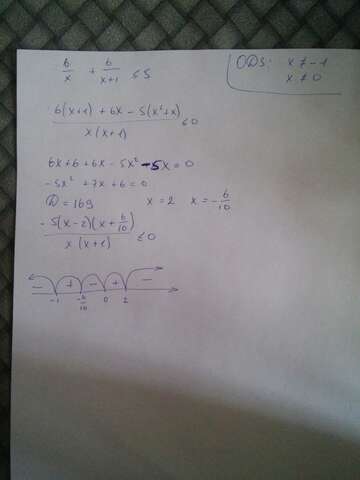 6/x + 6/(x+1) ≤ 5
ODS: x ≠ -1
x ≠ 0
(6(x+1) + 6x - 5(x²+x))/(x(x+1)) ≤ 0
6x + 6 + 6x - 5x² - 5x = 0
-5x² + 7x + 6 = 0
D = 169 x = 2 x = -6/10
(-5(x-2)(x+6/10))/(x(x+1)) ≤ 0
- + - + -
-1 -6/10 0 2